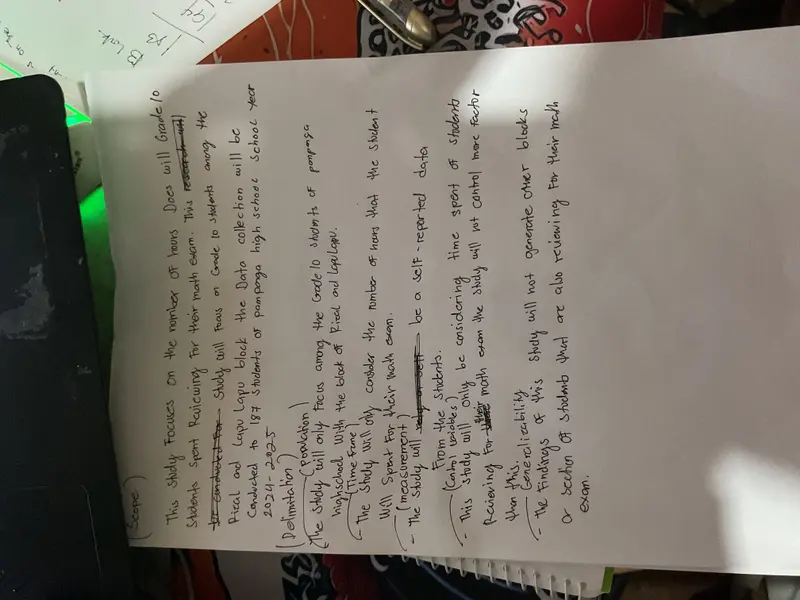 (Scope)
This Study Focuses on the number of hours Does will Grade 10
Students spent Reviewing For their math exam. This research will
be conducted for Study will Focus on Grade 10 students among the
Rizal and Lapu Lapu block the Data collection will be
Conducted to 187 students of pampanga high school school year
2024-2025
(Delimitation)
(Population)
(The study will only Focus among the Grade 10 students of pampanga
highschool with the block of Rizal and LapuLapu.
(Time Frame)
- The study will only consider the number of hours that the student
Will Spent For their math exam.
(measurement)
- The study will be a self-reported data
From the students.
(Control variables)
- This study will only be considering time spent of students
Reviewing For their math exam the study will not control more factor
than this.
Generalizability
- the Findings of this study will not generate other blocks
or section of students that are also reviewing for their math
exam.